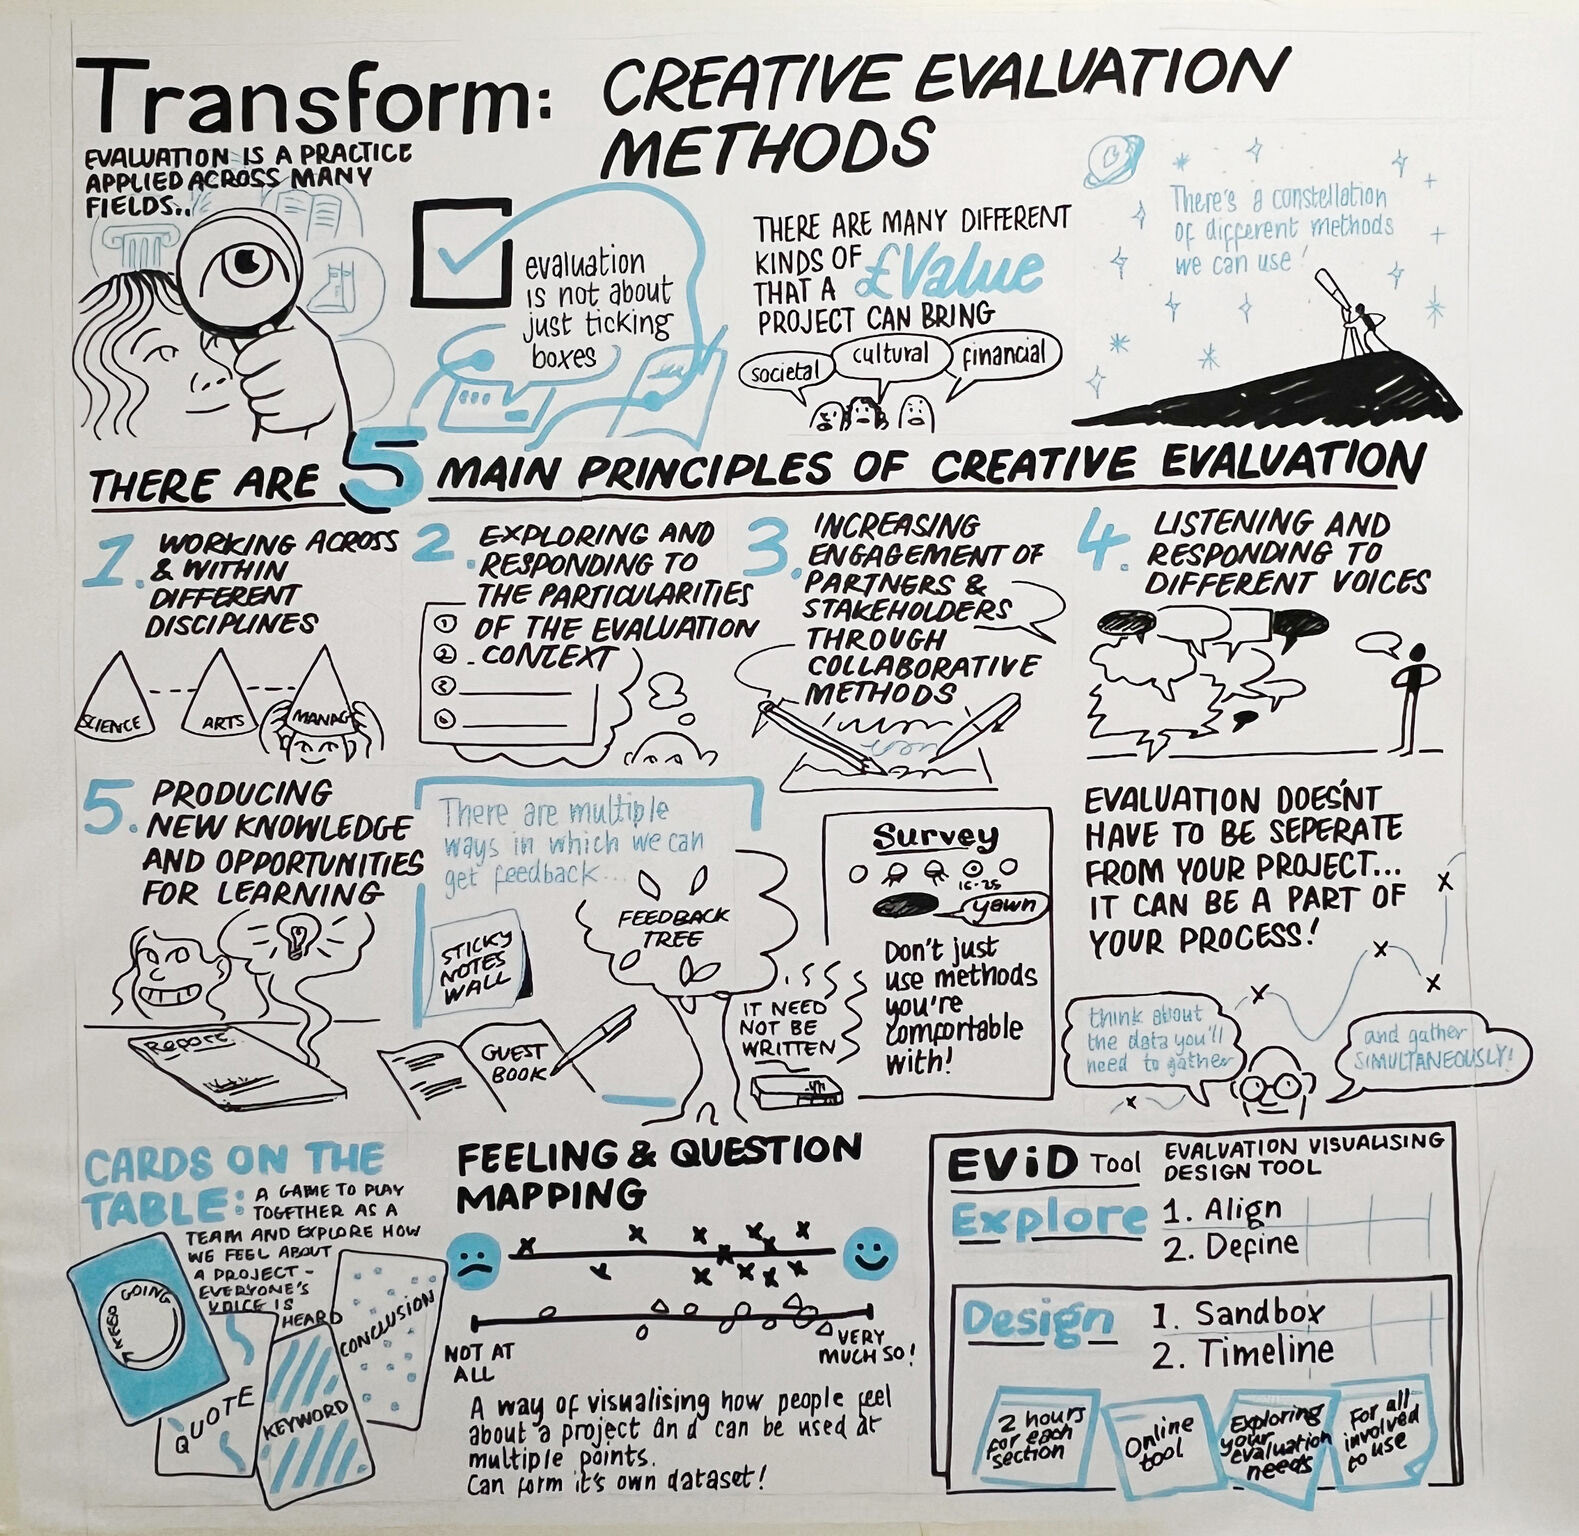 Transform:
CREATIVE EVALUATION
METHODS
EVALUATION IS A PRACTICE
APPLIED ACROSS MANY
FIELDS..
evaluation
is not about
just ticking
boxes
THERE ARE MANY DIFFERENT
KINDS OF £Value
THAT A
PROJECT CAN BRING
societal
cultural
financial
There's a constellation
of different methods
we can use!
THERE ARE 5 MAIN PRINCIPLES OF CREATIVE EVALUATION
1. WORKING ACROSS
& WITHIN
DIFFERENT
DISCIPLINES
SCIENCE
ARTS
MANAG
2. EXPLORING AND
RESPONDING TO
THE PARTICULARITIES
OF THE EVALUATION
CONTEXT
1
2
3. INCREASING
ENGAGEMENT OF
PARTNERS &
STAKEHOLDERS
THROUGH
COLLABORATIVE
METHODS
4. LISTENING AND
RESPONDING TO
DIFFERENT VOICES
5. PRODUCING
NEW KNOWLEDGE
AND OPPORTUNITIES
FOR LEARNING
Report
There are multiple
ways in which we can
get feedback...
STICKY
NOTES
WALL
FEEDBACK
TREE
GUEST
BOOK
IT NEED
NOT BE
WRITTEN
Survey
16-25
yawn
Don't just
use methods
you're
comfortable
with!
EVALUATION DOESN'T
HAVE TO BE SEPERATE
FROM YOUR PROJECT...
IT CAN BE A PART OF
YOUR PROCESS!
think about
the data you'll
need to gather
and gather
SIMULTANEOUSLY!
CARDS ON THE
TABLE: A GAME TO PLAY
TOGETHER AS A
TEAM AND EXPLORE HOW
WE FEEL ABOUT
A PROJECT -
EVERYONE'S
VOICE IS
HEARD
KEEP GOING
QUOTE
KEYWORD
CONCLUSION
FEELING & QUESTION
MAPPING
NOT AT
ALL
VERY
MUCH SO!
A way of visualising how people feel
about a project and can be used at
multiple points.
Can form it's own dataset!
EViD Tool
EVALUATION VISUALISING
DESIGN TOOL
Explore
1. Align
2. Define
Design
1. Sandbox
2. Timeline
2 hours
for each
section
Online
tool
Exploring
your
evaluation
needs
For all
involved
to use